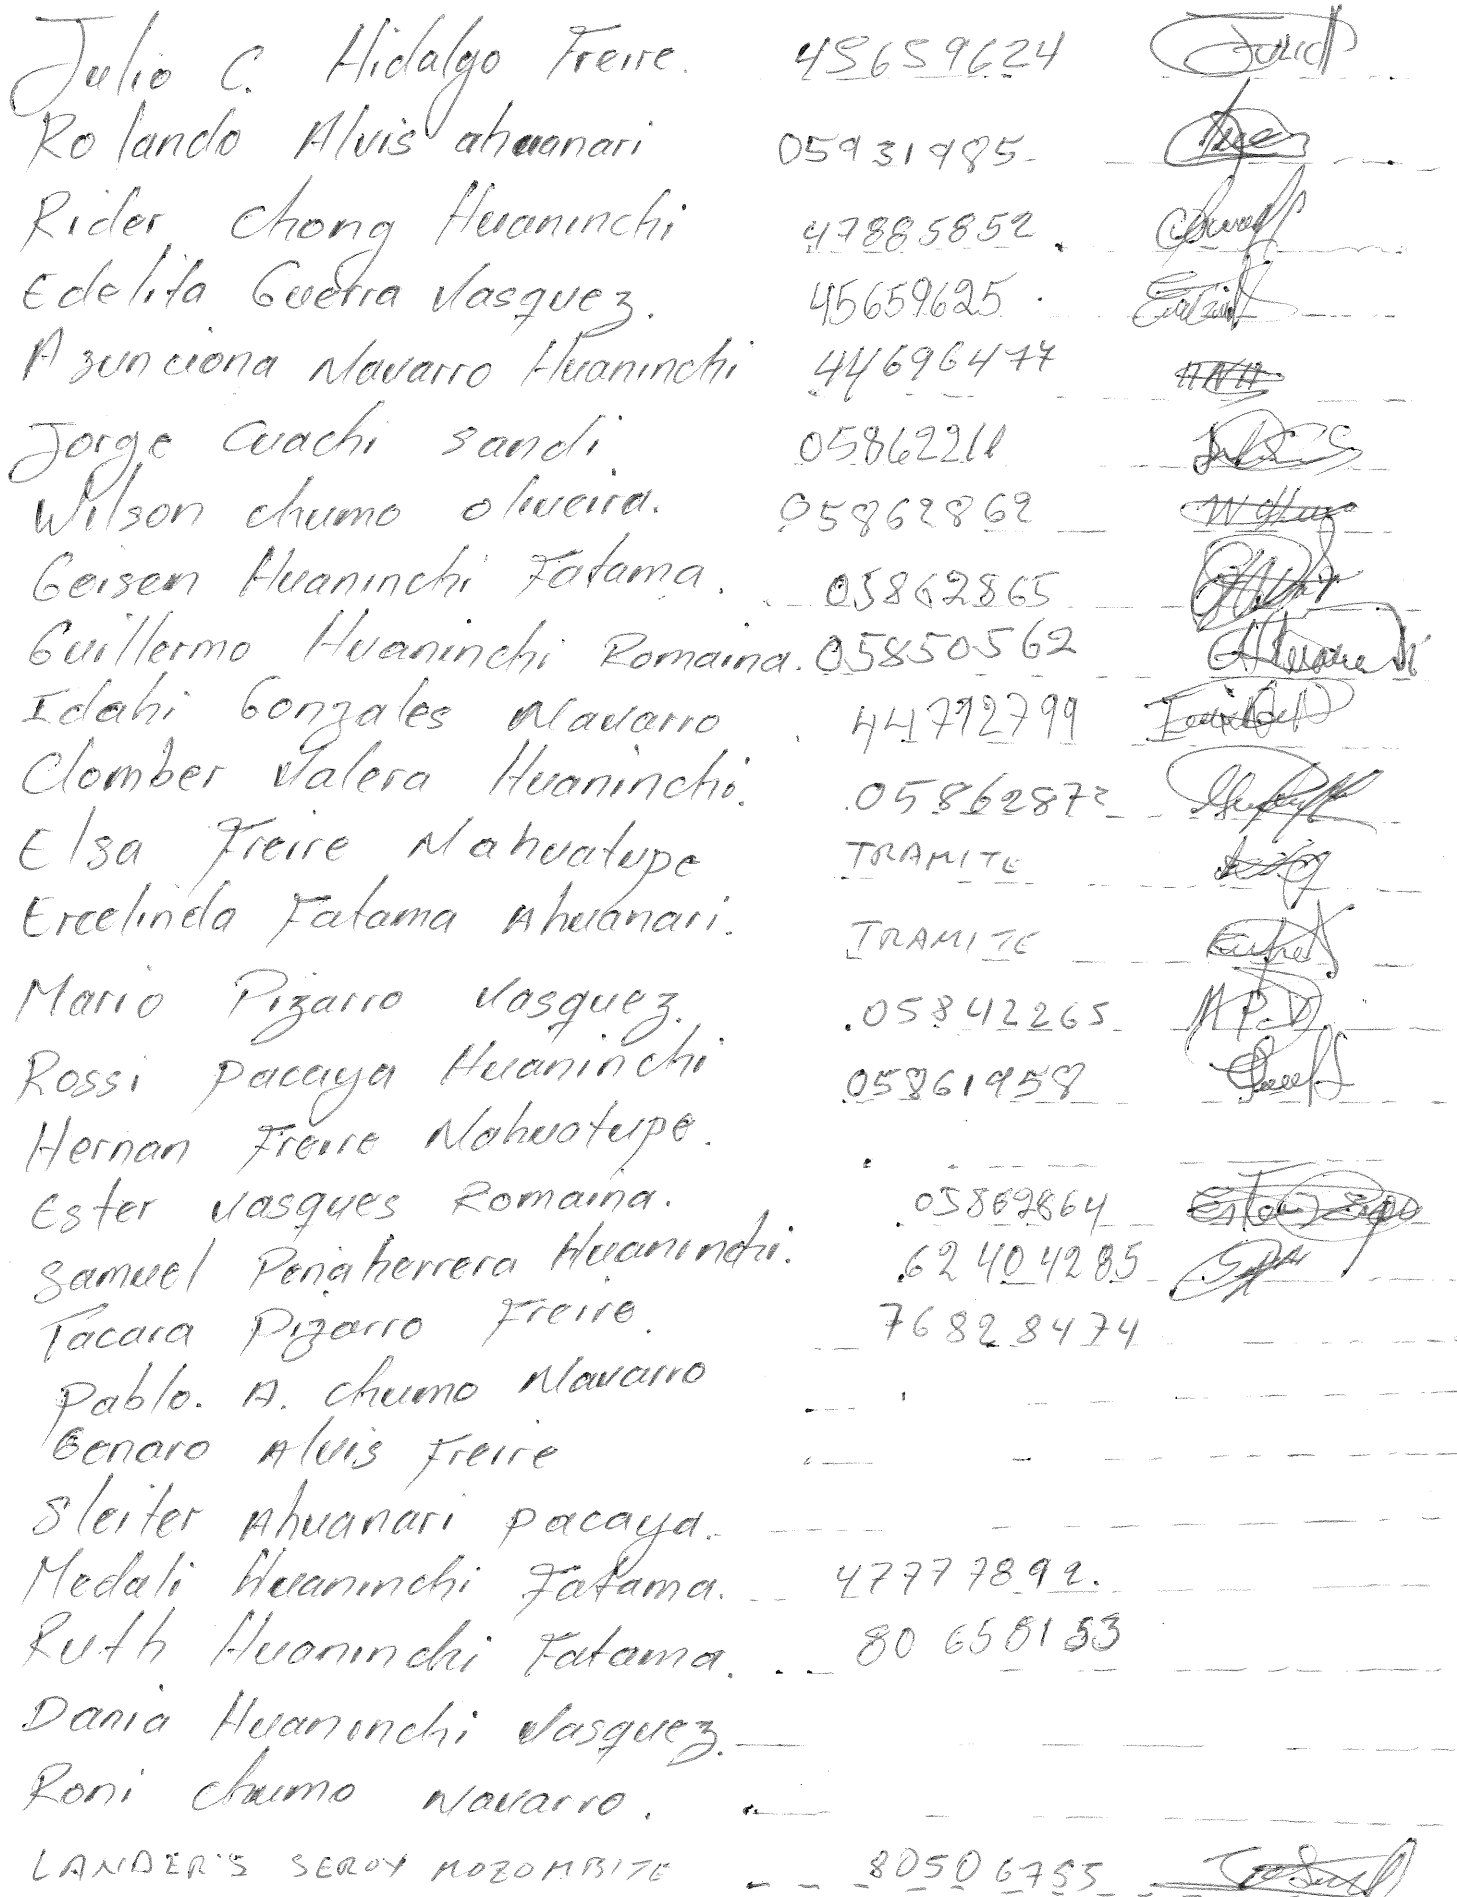 Julio C. Hidalgo Freire. 45659624
Rolando Alvis ahuanari 05931985
Rider Chong Huaninchi 47885852
Edelita Guerra Vasquez. 45659625
Azunciona Navarro Huaninchi 44696477
Jorge Cuachi Sandi 05862211
Wilson chumo oliveira. 05862862
Geisen Huaninchi Fatama. 05862865
Guillermo Huaninchi Romaina. 05850562
Idahi Gonzales Navarro 44792799
Clomber Valera Huaninchi. 05862872
Elsa Freire Mahuatupe TRAMITE
Ercelinda Fatama Ahuanari. TRAMITE
Mario Pizarro Vasquez. 05842265
Rossi pacaya Huaninchi 05861958
Hernan Freire Mahuatupe.
Ester Vasques Romaina. 05862864
Samuel Penaherrera Huaninchi. 62404285
Tacara Pizarro Freire. 76828474
Pablo. A. Chumo Navarro
Genaro Alvis Freire
Sleiter Ahuanari pacaya.
Medali Huaninchi Fatama. 47777892.
Ruth Huaninchi Fatama. 80658153
Dania Huaninchi Vasquez
Roni chumo Navarro.
LANDER'S SEROY MOZOMBITE 80506755